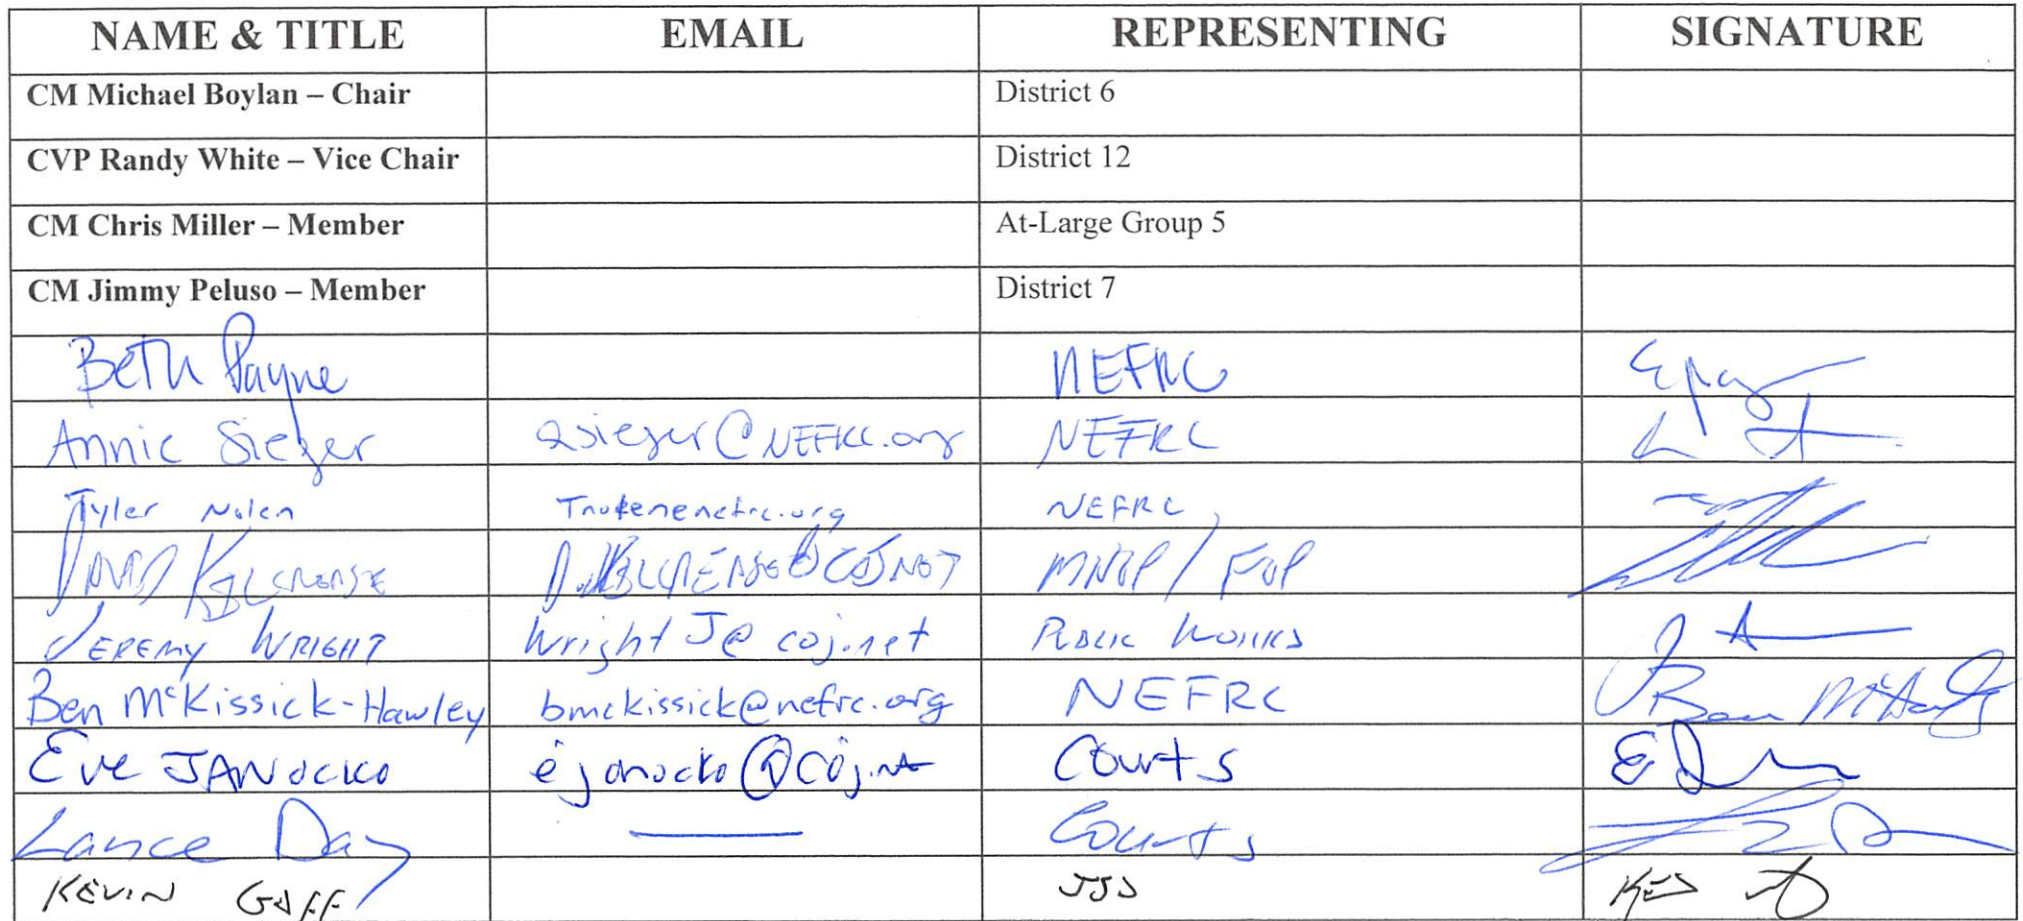 NAME & TITLE EMAIL REPRESENTING SIGNATURE
CM Michael Boylan – Chair District 6
CVP Randy White – Vice Chair District 12
CM Chris Miller – Member At-Large Group 5
CM Jimmy Peluso – Member District 7
Beth Payne NEFRC
Annie Sieger asieger@NEFRC.org NEFRC
Tyler Nolen NEFRC
DAVID KILCREASE
JEREMY WRIGHT WrightJ@coj.net PUBLIC WORKS
Ben McKissick-Hawley bmckissick@nefrc.org NEFRC
Eve JANOCKO ejanocko@coj.net Courts
Lance Day Courts
KEVIN